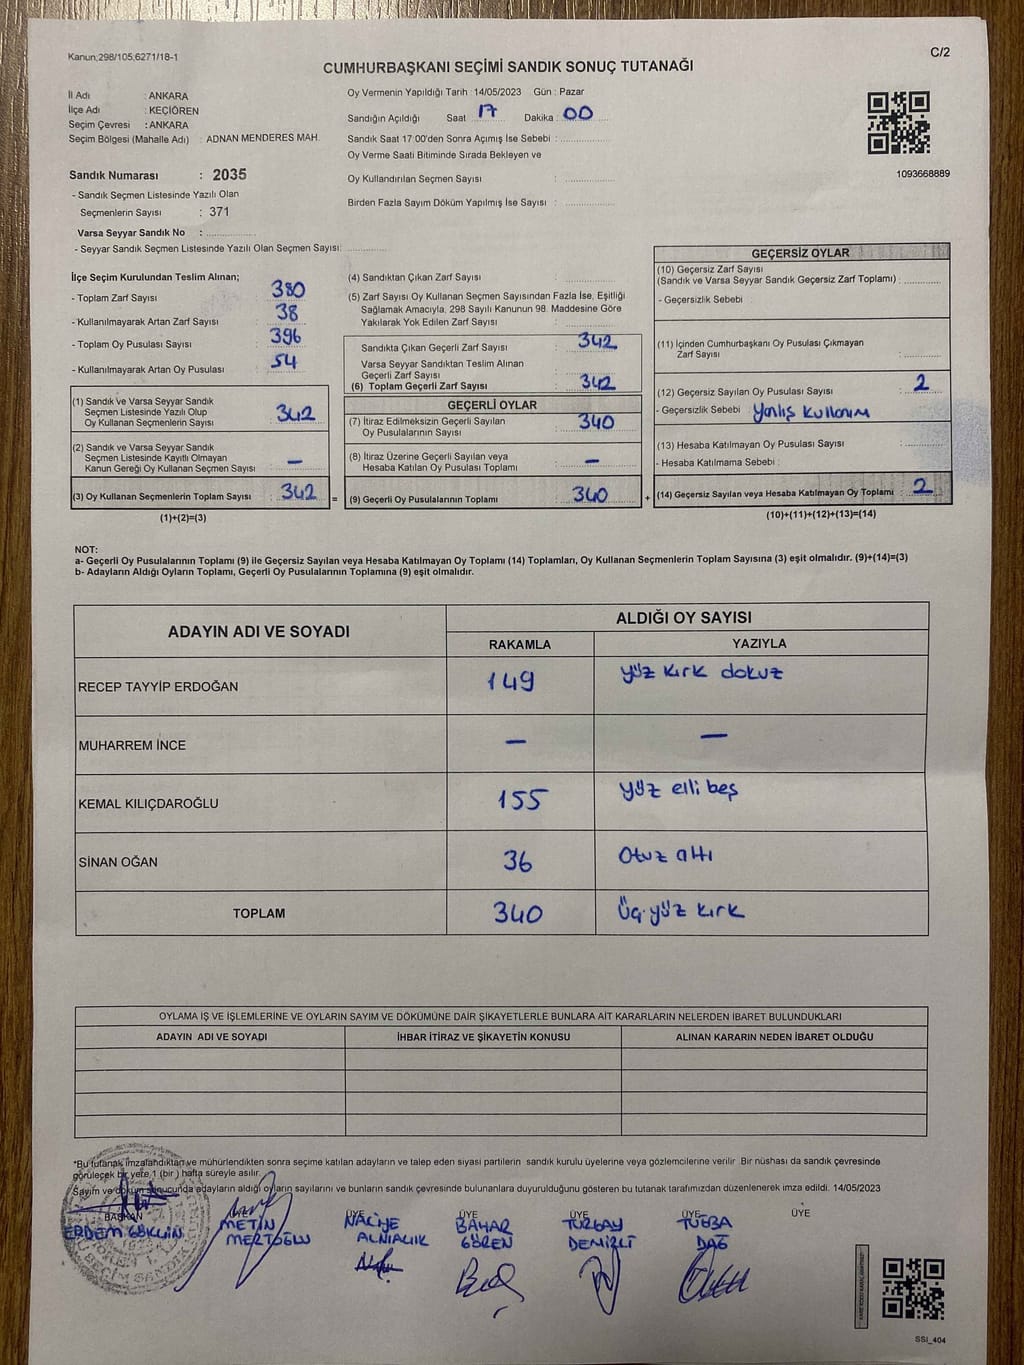 Kanun;298/105;6271/18-1
C/2
CUMHURBAŞKANI SEÇİMİ SANDIK SONUÇ TUTANAĞI
İl Adı : ANKARA
İlçe Adı : KEÇİÖREN
Seçim Çevresi : ANKARA
Seçim Bölgesi (Mahalle Adı) : ADNAN MENDERES MAH.
Sandık Numarası : 2035
- Sandık Seçmen Listesinde Yazılı Olan
Seçmenlerin Sayısı : 371
Varsa Seyyar Sandık No :
- Seyyar Sandık Seçmen Listesinde Yazılı Olan Seçmen Sayısı:
Oy Vermenin Yapıldığı Tarih : 14/05/2023 Gün : Pazar
Sandığın Açıldığı Saat 17 Dakika : 00
Sandık Saat 17:00'den Sonra Açımış İse Sebebi :
Oy Verme Saati Bitiminde Sırada Bekleyen ve
Oy Kullandırılan Seçmen Sayısı :
Birden Fazla Sayım Döküm Yapılmış İse Sayısı :
1093668889
İlçe Seçim Kurulundan Teslim Alınan;
- Toplam Zarf Sayısı : 380
- Kullanılmayarak Artan Zarf Sayısı : 38
- Toplam Oy Pusulası Sayısı : 396
- Kullanılmayarak Artan Oy Pusulası : 54
(1) Sandık ve Varsa Seyyar Sandık
Seçmen Listesinde Yazılı Olup
Oy Kullanan Seçmenlerin Sayısı : 342
(2) Sandık ve Varsa Seyyar Sandık
Seçmen Listesinde Kayıtlı Olmayan
Kanun Gereği Oy Kullanan Seçmen Sayısı : —
(3) Oy Kullanan Seçmenlerin Toplam Sayısı : 342 =
(1)+(2)=(3)
(4) Sandıktan Çıkan Zarf Sayısı :
(5) Zarf Sayısı Oy Kullanan Seçmen Sayısından Fazla İse, Eşitliği
Sağlamak Amacıyla, 298 Sayılı Kanunun 98. Maddesine Göre
Yakılarak Yok Edilen Zarf Sayısı :
Sandıkta Çıkan Geçerli Zarf Sayısı : 342
Varsa Seyyar Sandıktan Teslim Alınan
Geçerli Zarf Sayısı :
(6) Toplam Geçerli Zarf Sayısı : 342
GEÇERLİ OYLAR
(7) İtiraz Edilmeksizin Geçerli Sayılan
Oy Pusulalarının Sayısı : 340
(8) İtiraz Üzerine Geçerli Sayılan veya
Hesaba Katılan Oy Pusulası Toplamı : —
(9) Geçerli Oy Pusulalarının Toplamı : 340 +
GEÇERSİZ OYLAR
(10) Geçersiz Zarf Sayısı
(Sandık ve Varsa Seyyar Sandık Geçersiz Zarf Toplamı) :
- Geçersizlik Sebebi :
(11) İçinden Cumhurbaşkanı Oy Pusulası Çıkmayan
Zarf Sayısı :
(12) Geçersiz Sayılan Oy Pusulası Sayısı : 2
- Geçersizlik Sebebi : Yanlış Kullanım
(13) Hesaba Katılmayan Oy Pusulası Sayısı :
- Hesaba Katılmama Sebebi :
(14) Geçersiz Sayılan veya Hesaba Katılmayan Oy Toplamı : 2
(10)+(11)+(12)+(13)=(14)
NOT:
a- Geçerli Oy Pusulalarının Toplamı (9) ile Geçersiz Sayılan veya Hesaba Katılmayan Oy Toplamı (14) Toplamları, Oy Kullanan Seçmenlerin Toplam Sayısına (3) eşit olmalıdır. (9)+(14)=(3)
b- Adayların Aldığı Oyların Toplamı, Geçerli Oy Pusulalarının Toplamına (9) eşit olmalıdır.
ADAYIN ADI VE SOYADI
ALDIĞI OY SAYISI
RAKAMLA YAZIYLA
RECEP TAYYİP ERDOĞAN 149 yüz kırk dokuz
MUHARREM İNCE — —
KEMAL KILIÇDAROĞLU 155 yüz elli beş
SİNAN OĞAN 36 Otuz altı
TOPLAM 340 Üç yüz kırk
OYLAMA İŞ VE İŞLEMLERİNE VE OYLARIN SAYIM VE DÖKÜMÜNE DAİR ŞİKAYETLERLE BUNLARA AİT KARARLARIN NELERDEN İBARET BULUNDUKLARI
ADAYIN ADI VE SOYADI İHBAR İTİRAZ VE ŞİKAYETİN KONUSU ALINAN KARARIN NEDEN İBARET OLDUĞU
*Bu tutanak imzalandıktan ve mühürlendikten sonra seçime katılan adayların ve talep eden siyasi partilerin sandık kurulu üyelerine veya gözlemcilerine verilir Bir nüshası da sandık çevresinde
görülecek bir yere 1 (bir) hafta süreyle asılır.
Sayım ve döküm sonucunda adayların aldığı oyların sayılarını ve bunların sandık çevresinde bulunanlara duyurulduğunu gösteren bu tutanak tarafımızdan düzenlenerek imza edildi. 14/05/2023
BAŞKAN ÜYE ÜYE ÜYE ÜYE ÜYE ÜYE
ERDEM METİN NACİYE BAHAR TURGAY TUĞBA
MERTOĞLU ALNIAÇIK GÖREN DEMİRLİ DAĞ
SSI_404